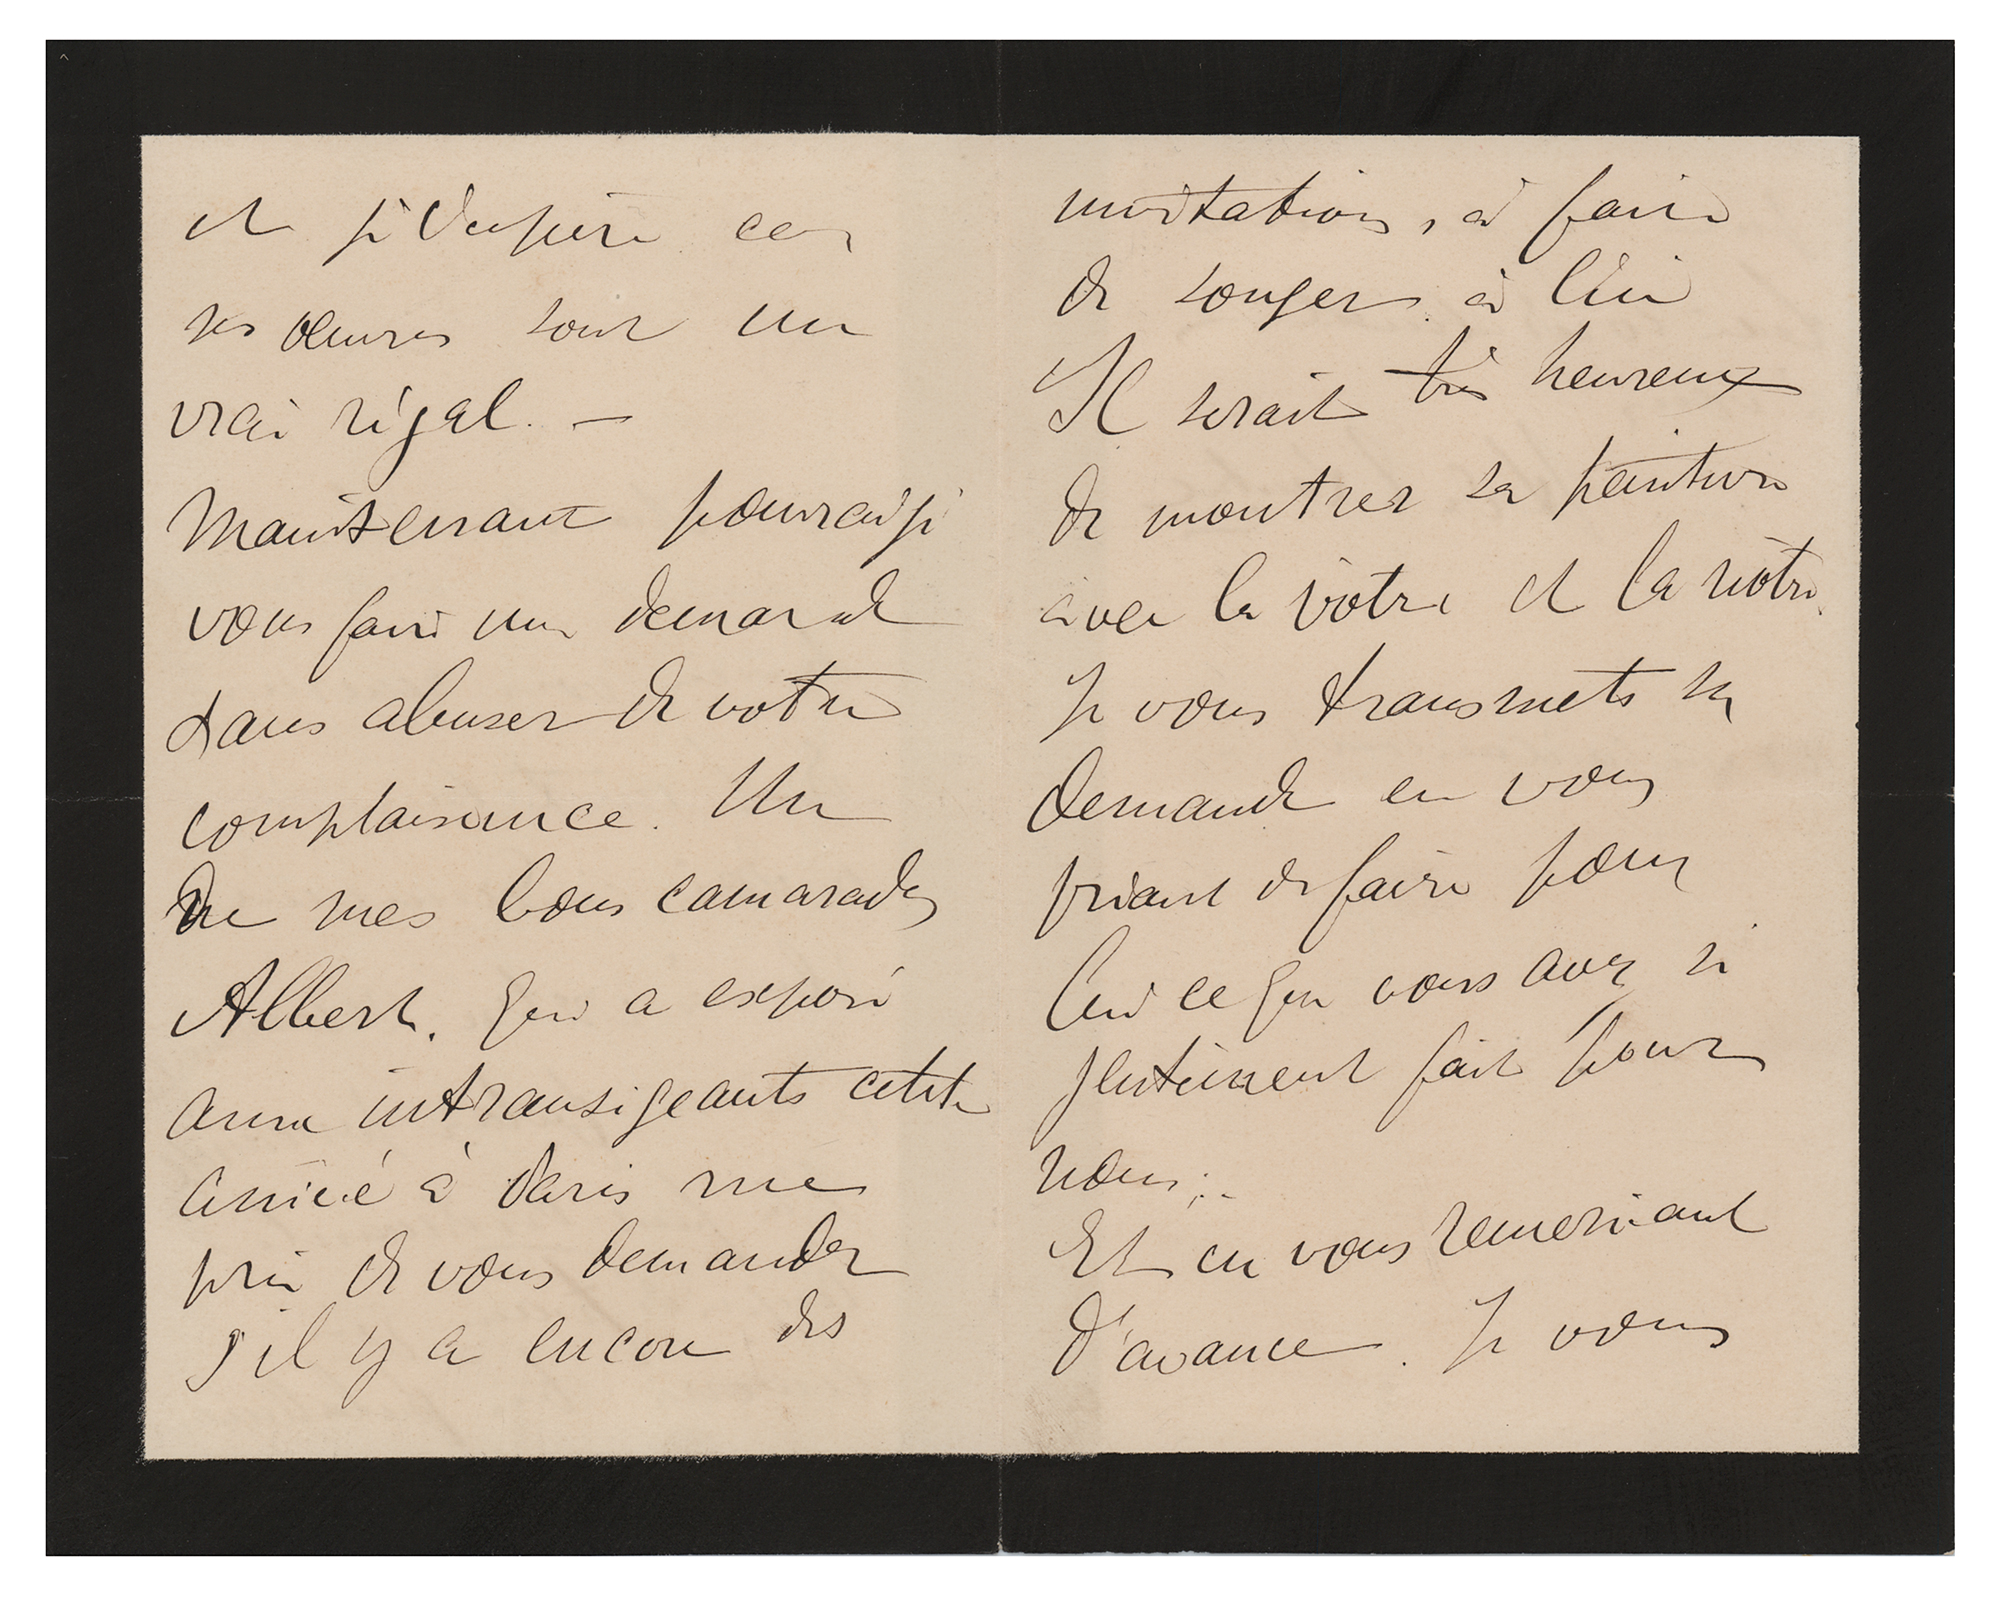 et je l'espère car
ses œuvres sont un
vrai régal. —
Maintenant pourrai je
vous faire une demande
sans abuser de votre
complaisance. Un
de mes bons camarades
Albert. qui a exposé
aux intransigeants cette
année à Paris me
prie de vous demander
s'il y a encore des
invitations, à faire
de songer à lui
Il serait très heureux
de montrer sa peinture
avec la vôtre et la nôtre
Je vous transmets sa
demande en vous
priant de faire pour
lui ce que vous avez si
gentiment fait pour
nous.
Et en vous remerciant
d'avance. Je vous